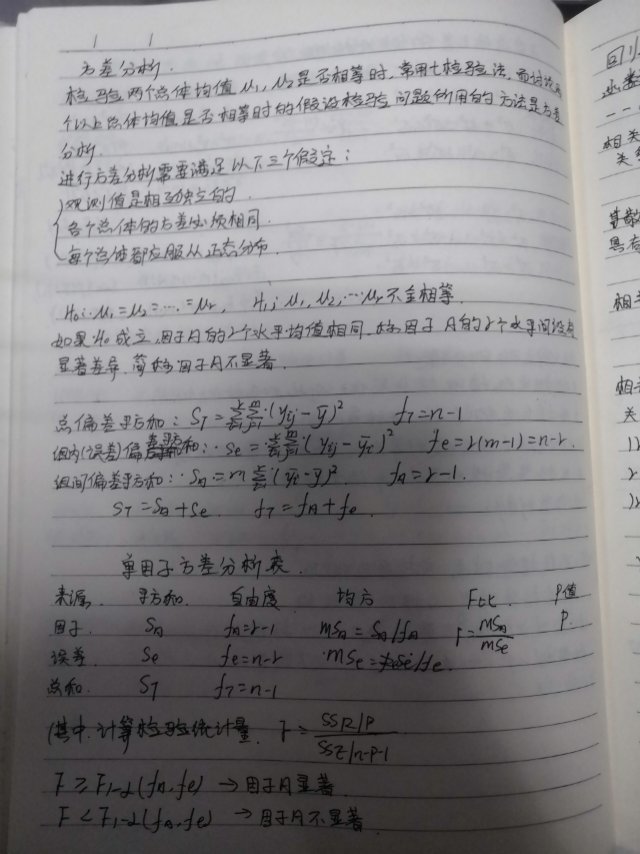 方差分析.
检验两个总体均值 μ1, μ2是否相等时, 常用t检验法, 而讨论
个以上总体均值是否相等时的假设检验问题所用的方法是方差
分析.
进行方差分析需要满足以下三个假定:
观测值是相互独立的
各个总体的方差必须相同.
每个总体都应服从正态分布.
H0: μ1=μ2=……=μr, H1: μ1, μ2, …μr不全相等.
如果H0成立, 因子A的r个水平均值相同, 称因子A的r个水平间没有
显著差异, 简称因子A不显著.
总偏差平方和: ST=Σ(i=1,r)Σ(j=1,m)(yij-ȳ)² fT=n-1
组内(误差)偏差平方和: Se=Σ(i=1,r)Σ(j=1,m)(yij-ȳi)² fe=r(m-1)=n-r.
组间偏差平方和: SA=mΣ(i=1,r)(ȳi-ȳ)². fA=r-1.
ST=SA+Se. fT=fA+fe.
单因子方差分析表.
来源. 平方和. 自由度. 均方 F比. P值
因子. SA fA=r-1 MSA=SA/fA F=MSA/MSe P.
误差. Se fe=n-r MSe=Se/fe.
总和. ST fT=n-1
(其中, 计算检验统计量. F=(SSR/P)/(SSE/n-P-1)
F≥F1-α(fA,fe) →因子A显著.
F<F1-α(fA,fe) →因子A不显著.
回归
函数
相关
关系
相关
相关
关